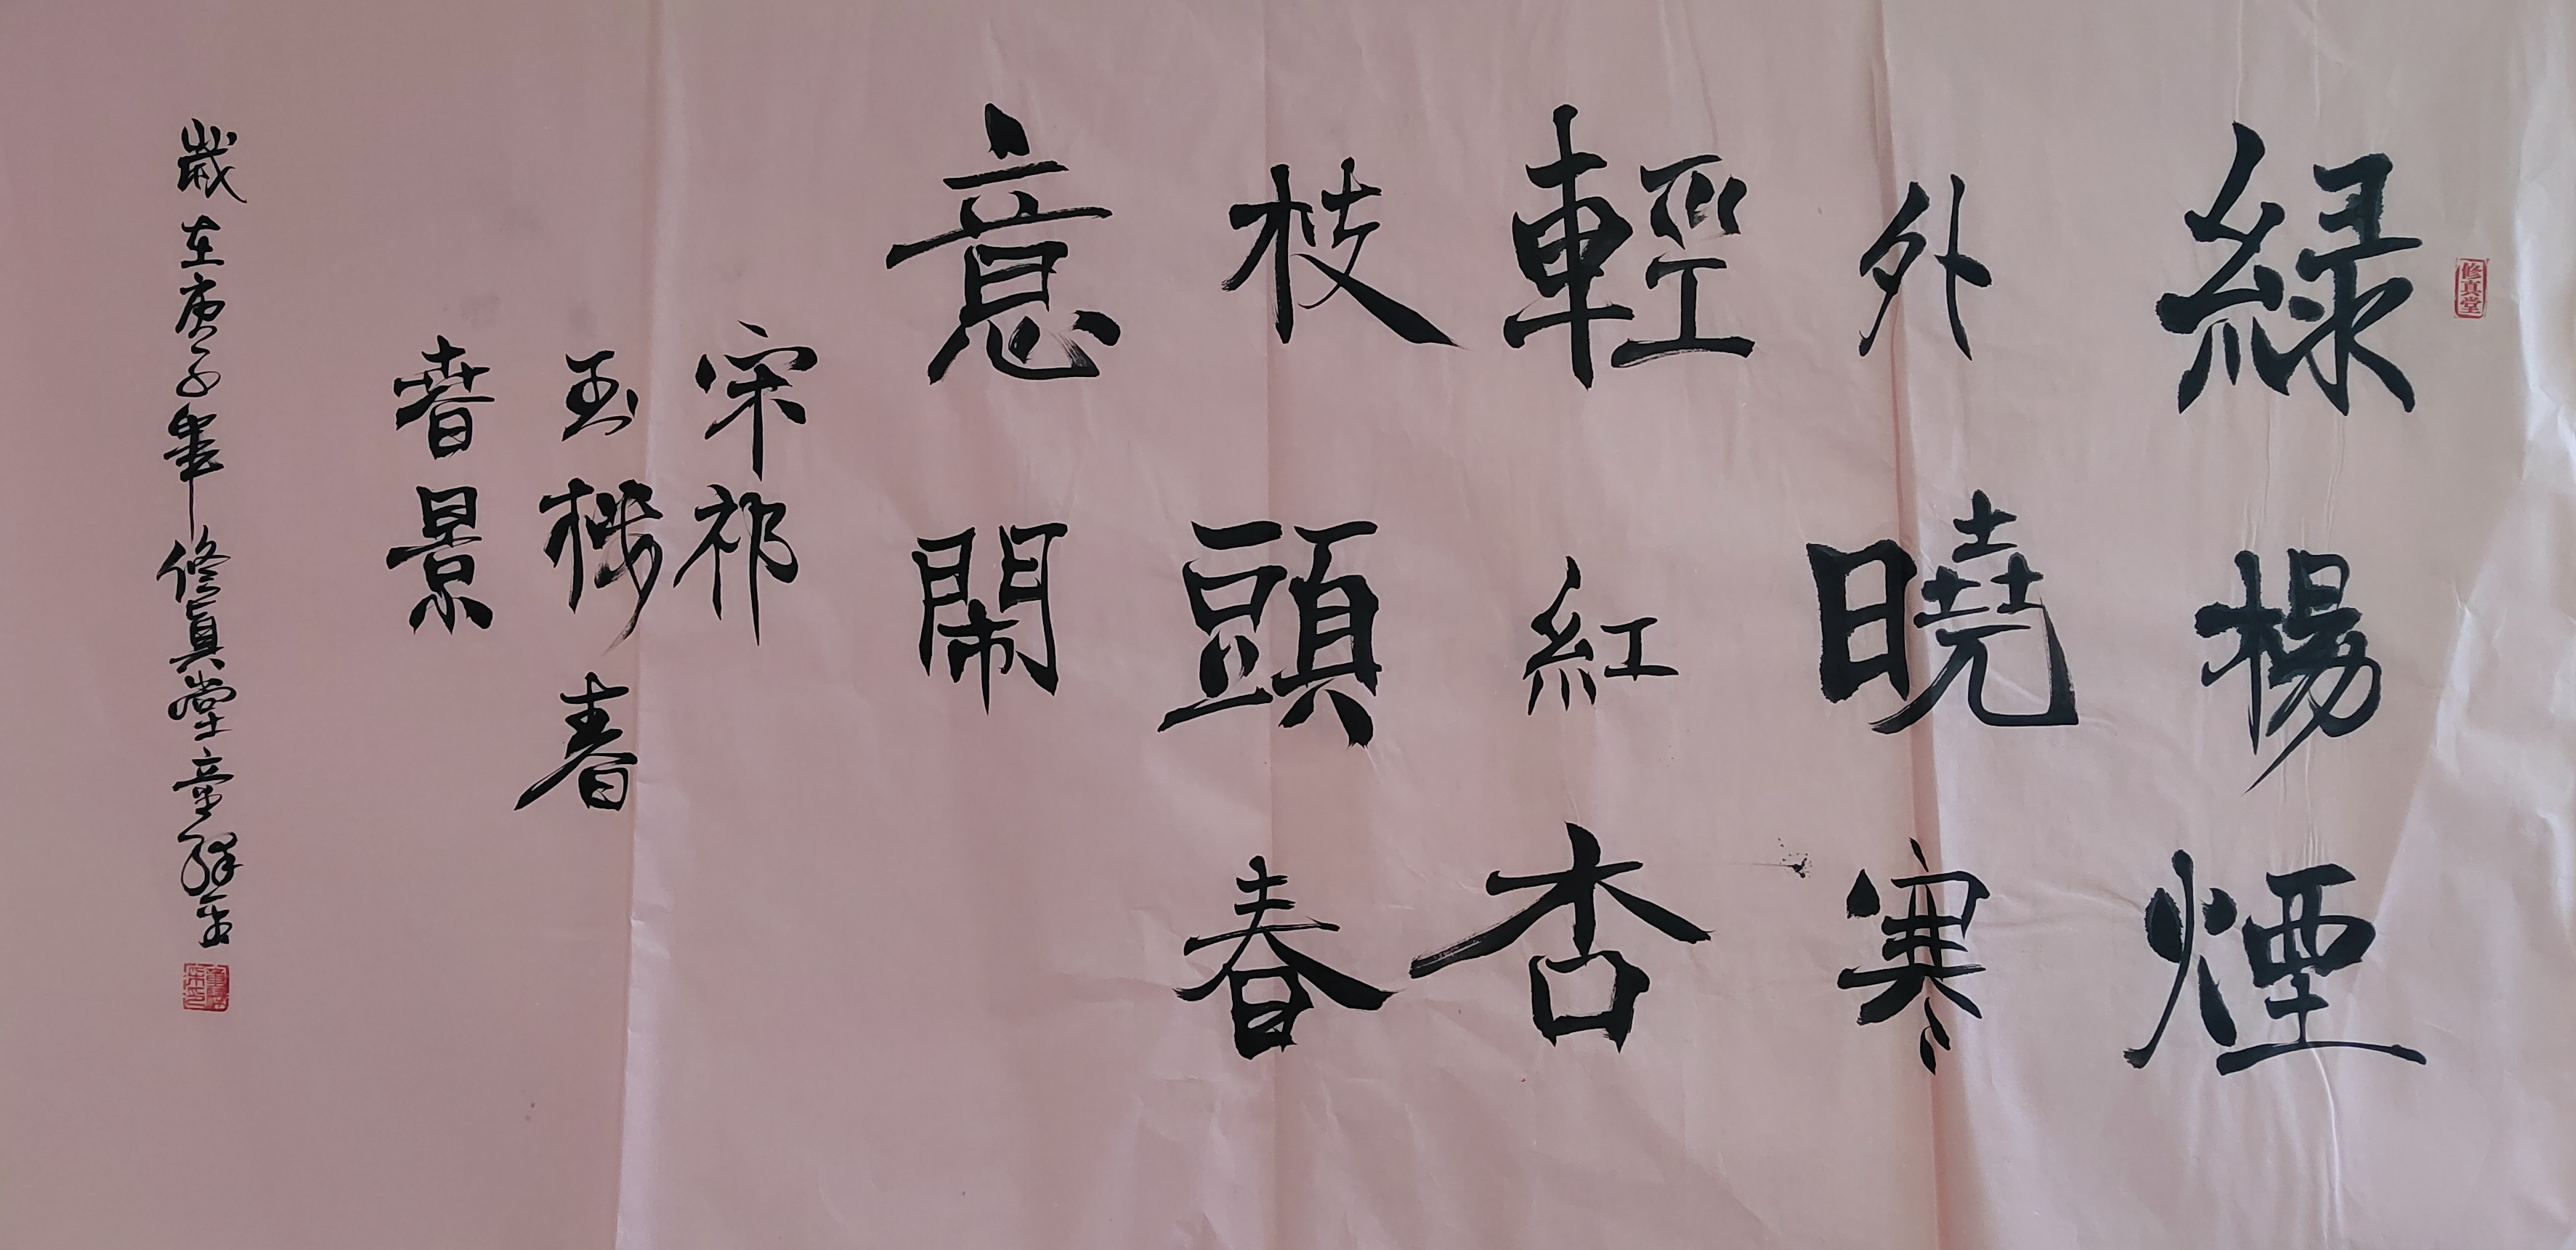 修真堂
綠楊煙
外曉寒
輕紅杏
枝頭春
意鬧
宋祁
玉樓春
春景
歲在庚子肇修真堂童